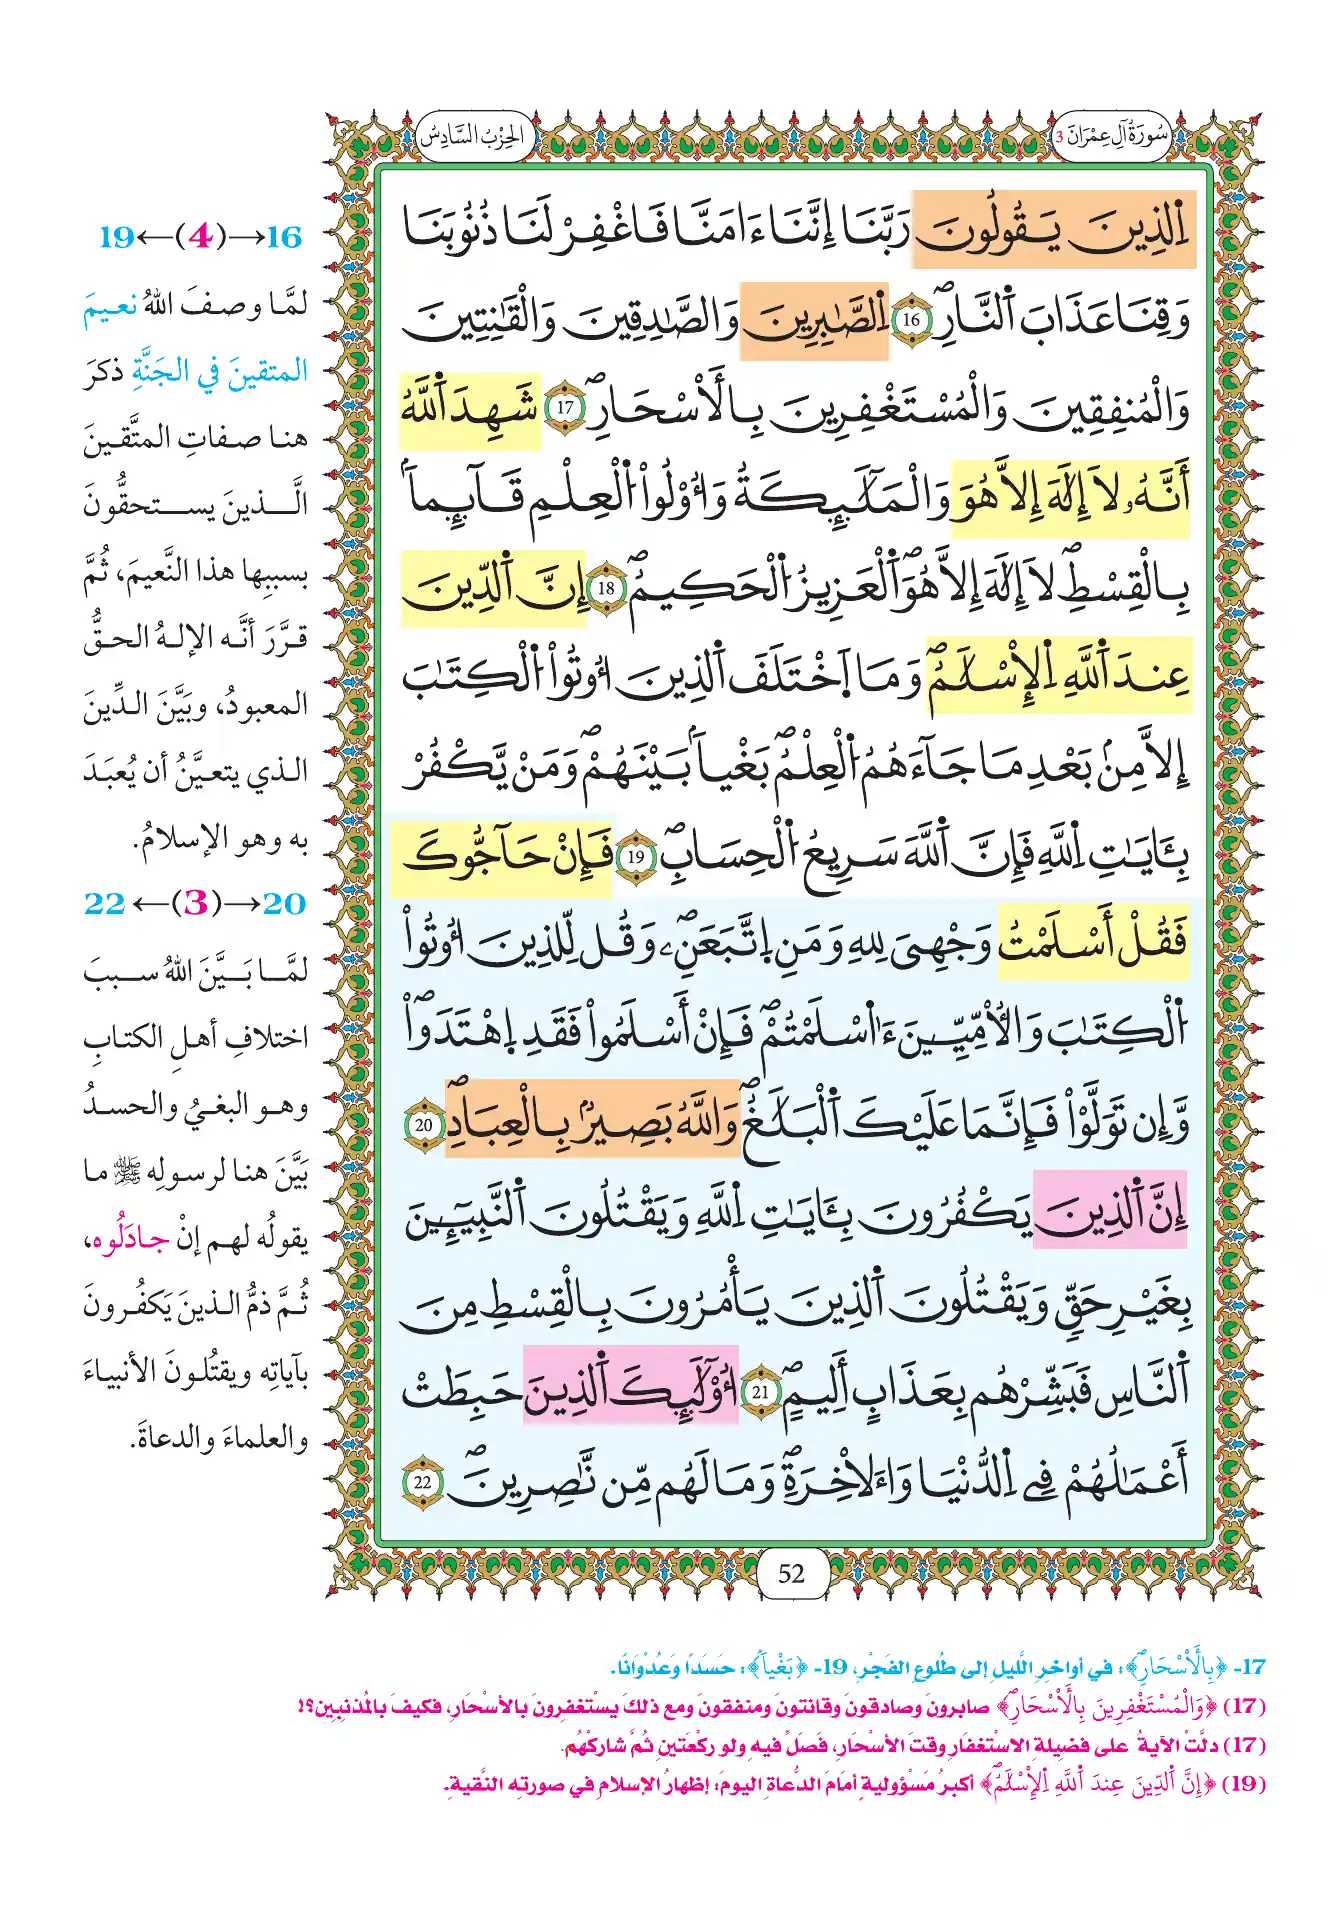 سُورَةُ آلِ عِمْرَانَ 3
الحِزْبُ السَّادِسُ
اِ۬لذِينَ يَقُولُونَ رَبَّنَا إِنَّنَا ءَامَنَّا فَاغْفِرْ لَنَا ذُنُوبَنَا
وَقِنَا عَذَابَ اَ۬لنَّارِۖ 16 اِ۬لصَّٰبِرِينَ وَالصَّٰدِقِينَ وَالْقَٰنِتِينَ
وَالْمُنفِقِينَ وَالْمُسْتَغْفِرِينَ بِالْأَسْحَارِۖ 17 شَهِدَ اَ۬للَّهُ
أَنَّهُۥ لَا إِلَٰهَ إِلَّا هُوَ وَالْمَلَٰٓئِكَةُ وَأُوْلُواْ اُ۬لْعِلْمِ قَآئِماَۢ
بِالْقِسْطِۖ لَا إِلَٰهَ إِلَّا هُوَۖ اَ۬لْعَزِيزُ اُ۬لْحَكِيمُۖ 18 إِنَّ اَ۬لدِّينَ
عِندَ اَ۬للَّهِ اِ۬لْإِسْلَٰمُۖ وَمَا اَ۪خْتَلَفَ اَ۬لذِينَ أُوتُواْ اُ۬لْكِتَٰبَ
إِلَّا مِنۢ بَعْدِ مَا جَآءَهُمُ اُ۬لْعِلْمُۖ بَغْياَۢ بَيْنَهُمْۖ وَمَنْ يَّكْفُرْ
بِـَٔايَٰتِ اِ۬للَّهِ فَإِنَّ اَ۬للَّهَ سَرِيعُ اُ۬لْحِسَابِۖ 19 فَإِنْ حَآجُّوكَ
فَقُلْ أَسْلَمْتُ وَجْهِيَ لِلهِ وَمَنِ اِ۪تَّبَعَنِۦۖ وَقُل لِّلذِينَ أُوتُواْ
اُ۬لْكِتَٰبَ وَالْأُمِّيِّـۧنَ ءَآسْلَمْتُمْۖ فَإِنْ أَسْلَمُواْ فَقَدِ اِ۪هْتَدَواْۖ
وَّإِن تَوَلَّوْاْ فَإِنَّمَا عَلَيْكَ اَ۬لْبَلَٰغُۖ وَاللَّهُ بَصِيرُۢ بِالْعِبَادِۖ 20
إِنَّ اَ۬لذِينَ يَكْفُرُونَ بِـَٔايَٰتِ اِ۬للَّهِ وَيَقْتُلُونَ اَ۬لنَّبِيٓـِٕينَ
بِغَيْرِ حَقّٖ وَيَقْتُلُونَ اَ۬لذِينَ يَأْمُرُونَ بِالْقِسْطِ مِنَ
اَ۬لنَّاسِ فَبَشِّرْهُم بِعَذَابٍ أَلِيمٍۖ 21 أُوْلَٰٓئِكَ اَ۬لذِينَ حَبِطَتْ
أَعْمَٰلُهُمْ فِي اِ۬لدُّنْيَا وَالَاخِرَةِۖ وَمَا لَهُم مِّن نَّٰصِرِينَۖ 22
52
16→(4)←19
لمَّا وصفَ اللهُ نعيمَ
المتقينَ في الجَنَّةِ ذكرَ
هنا صفاتِ المتَّقينَ
الَّذينَ يستحقُّونَ
بسببِها هذا النَّعيمَ، ثُمَّ
قرَّرَ أنَّه الإلهُ الحقُّ
المعبودُ، وبَيَّنَ الدِّينَ
الذي يتعيَّنُ أن يُعبَدَ
به وهو الإسلامُ.
20→(3)←22
لمَّا بَيَّنَ اللهُ سببَ
اختلافِ أهلِ الكتابِ
وهو البغيُ والحسدُ
بَيَّنَ هنا لرسولِه ﷺ ما
يقولُه لهم إنْ جادَلُوه،
ثُمَّ ذمُّ الذينَ يَكفُرونَ
بآياتِه ويقتُلونَ الأنبياءَ
والعلماءَ والدعاةَ.
17- ﴿بِالْأَسْحَارِۖ﴾: في أواخرِ اللَّيلِ إلى طُلوعِ الفَجْرِ، 19- ﴿بَغْياَۢ﴾: حَسَدًا وَعُدْوَانًا.
(17) ﴿وَالْمُسْتَغْفِرِينَ بِالْأَسْحَارِۖ﴾ صابرونَ وصادقونَ وقانتونَ ومنفقونَ ومع ذلكَ يسْتغفرونَ بالأسْحَارِ، فكيفَ بالمُذنبِينَ؟!
(17) دلَّتْ الآيةُ على فضيلةِ الاسْتغفَارِ وقتَ الأسْحَارِ، فَصَلِّ فيهِ ولو ركْعَتين ثُمَّ شاركْهُم.
(19) ﴿إِنَّ اَ۬لدِّينَ عِندَ اَ۬للَّهِ اِ۬لْإِسْلَٰمُۖ﴾ أكبرُ مَسْؤوليةٍ أمَامَ الدُّعاةِ اليومَ: إظهارُ الإسلامِ في صورتِه النَّقيةِ.